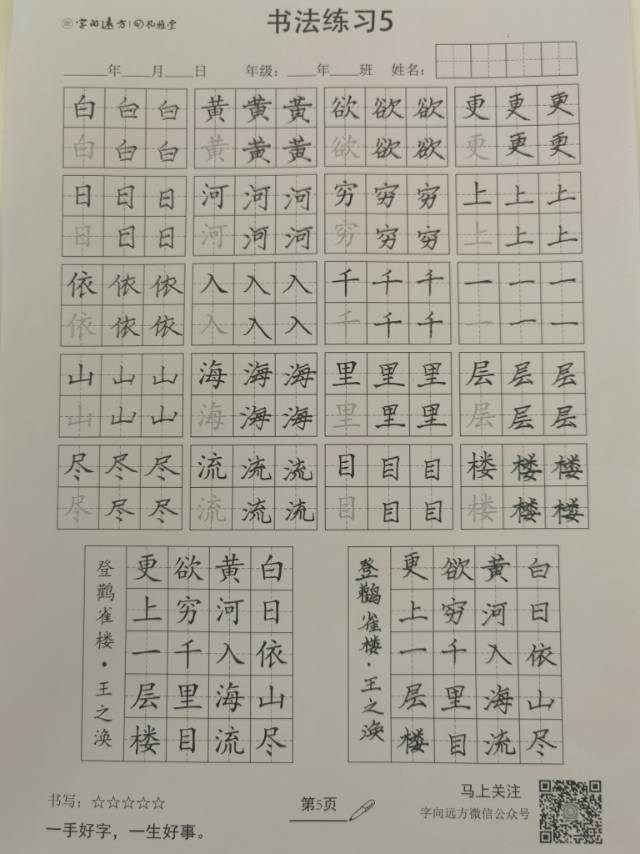 字向远方
书法练习5
____年___月___日 年级：___年___班 姓名：
白白白 黄黄黄 欲欲欲 更更更
白白白 黄黄黄 欲欲欲 更更更
日日日 河河河 穷穷穷 上上上
日日日 河河河 穷穷穷 上上上
依依依 入入入 千千千 一一一
依依依 入入入 千千千 一一一
山山山 海海海 里里里 层层层
山山山 海海海 里里里 层层层
尽尽尽 流流流 目目目 楼楼楼
尽尽尽 流流流 目目目 楼楼楼
白日依山尽
黄河入海流
欲穷千里目
更上一层楼
登鹳雀楼·王之涣
白日依山尽
黄河入海流
欲穷千里目
更上一层楼
登鹳雀楼·王之涣
书写：☆☆☆☆☆
一手好字，一生好事。
第5页
马上关注
字向远方微信公众号